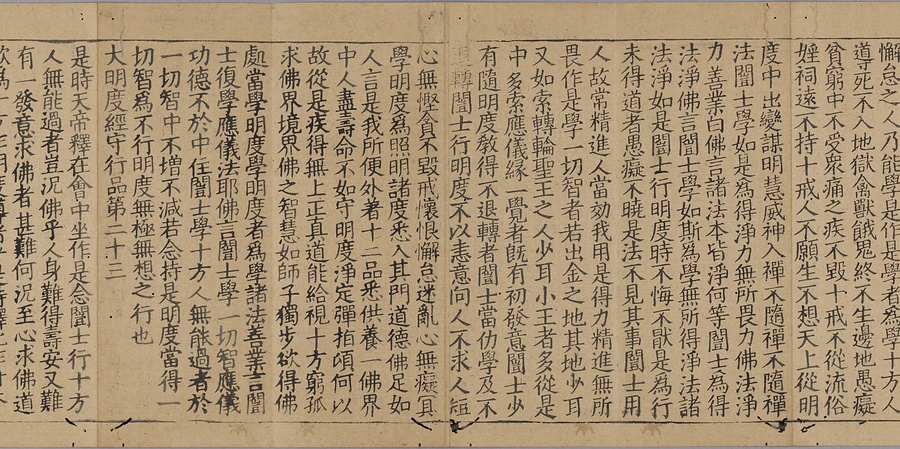 懈怠之人乃能學是作是學者爲學十方人
導死不入地獄禽獸餓鬼終不生邊地愚癡
貧窮中不受衆痛之疾不毀十戒不從流俗
婬祠遠不持十戒人不願生不想天上從明
度中出變謀明慧威神入禪不隨禪不隨禪
法闓士學如是爲得淨力無所畏力佛法淨
力善業曰佛言諸法本皆淨何等闓士爲得
法淨佛言闓士學如斯爲學無所得淨法諸
法淨如是闓士行明度時不悔不猒是爲行
未得道者愚癡不曉是法不見其事闓士用
人故常精進人當効我用是得力精進無所
畏作是學一切智者若出金之地其地少耳
又如索轉輪聖王之人少耳小王者多從是
中多索應儀緣一覺者旣有初發意闓士少
有隨明度教得不退轉者闓士當伪學及不
轉闓士行明度不以恚意向人不求人短
心無慳貪不毀戒懷恨懈怠迷亂心無癡冥
學明度爲照明諸度悉入其門道德佛足如
人言是我所便外著十二品悉供養一佛界
中人盡壽命不如守明度淨定彈指頃何以
故從是疾得無上正真道能給視十方窮孤
求佛界境界佛之智慧如師子獨步欲得佛
處當學明度學明度者爲學諸法善業言闓
士復學應儀法耶佛言闓士學一切智應儀
功德不於中住闓士學十方人無能過者於
一切智中不增不減若念持是明度當得一
切智爲不行明度無極無想之行也
大明度經守行品第二十三
是時天帝釋在會中坐作是念闓士行十方
人無能過者豈況佛乎人身難得壽安又難
有一發意求佛者甚難何況至心求佛道